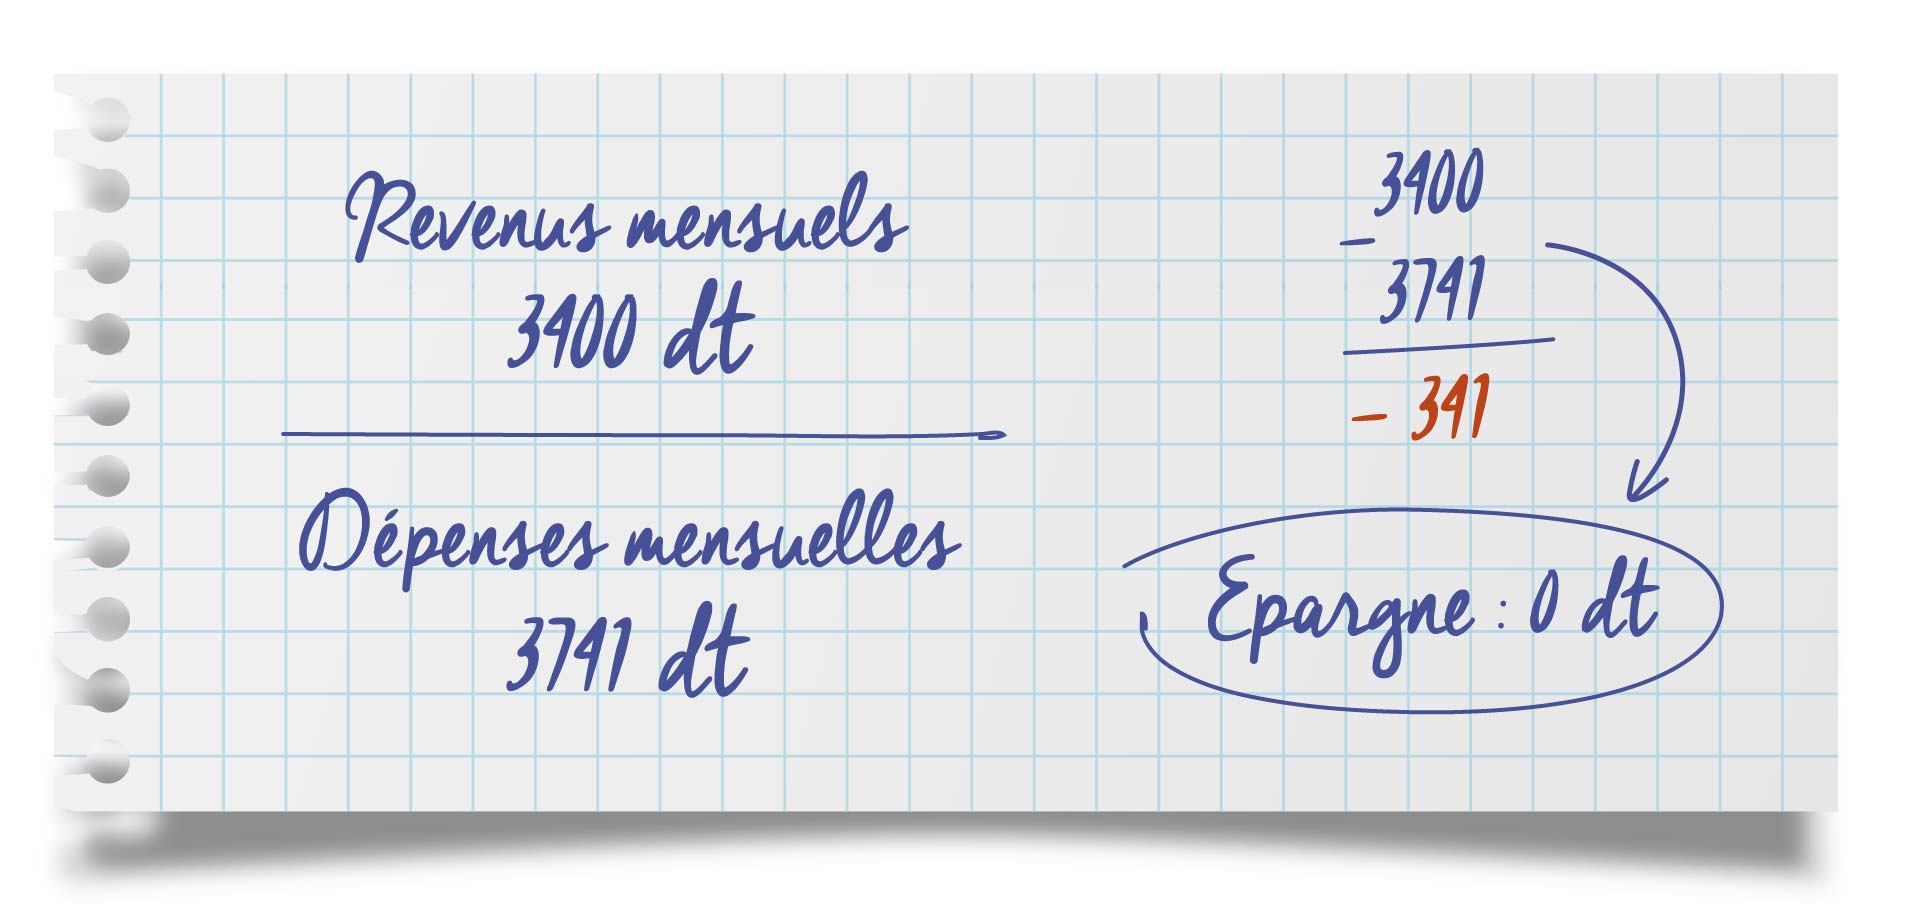 Revenus mensuels
3400 dt
Dépenses mensuelles
3741 dt
3400
-
3741
- 341
Epargne : 0 dt